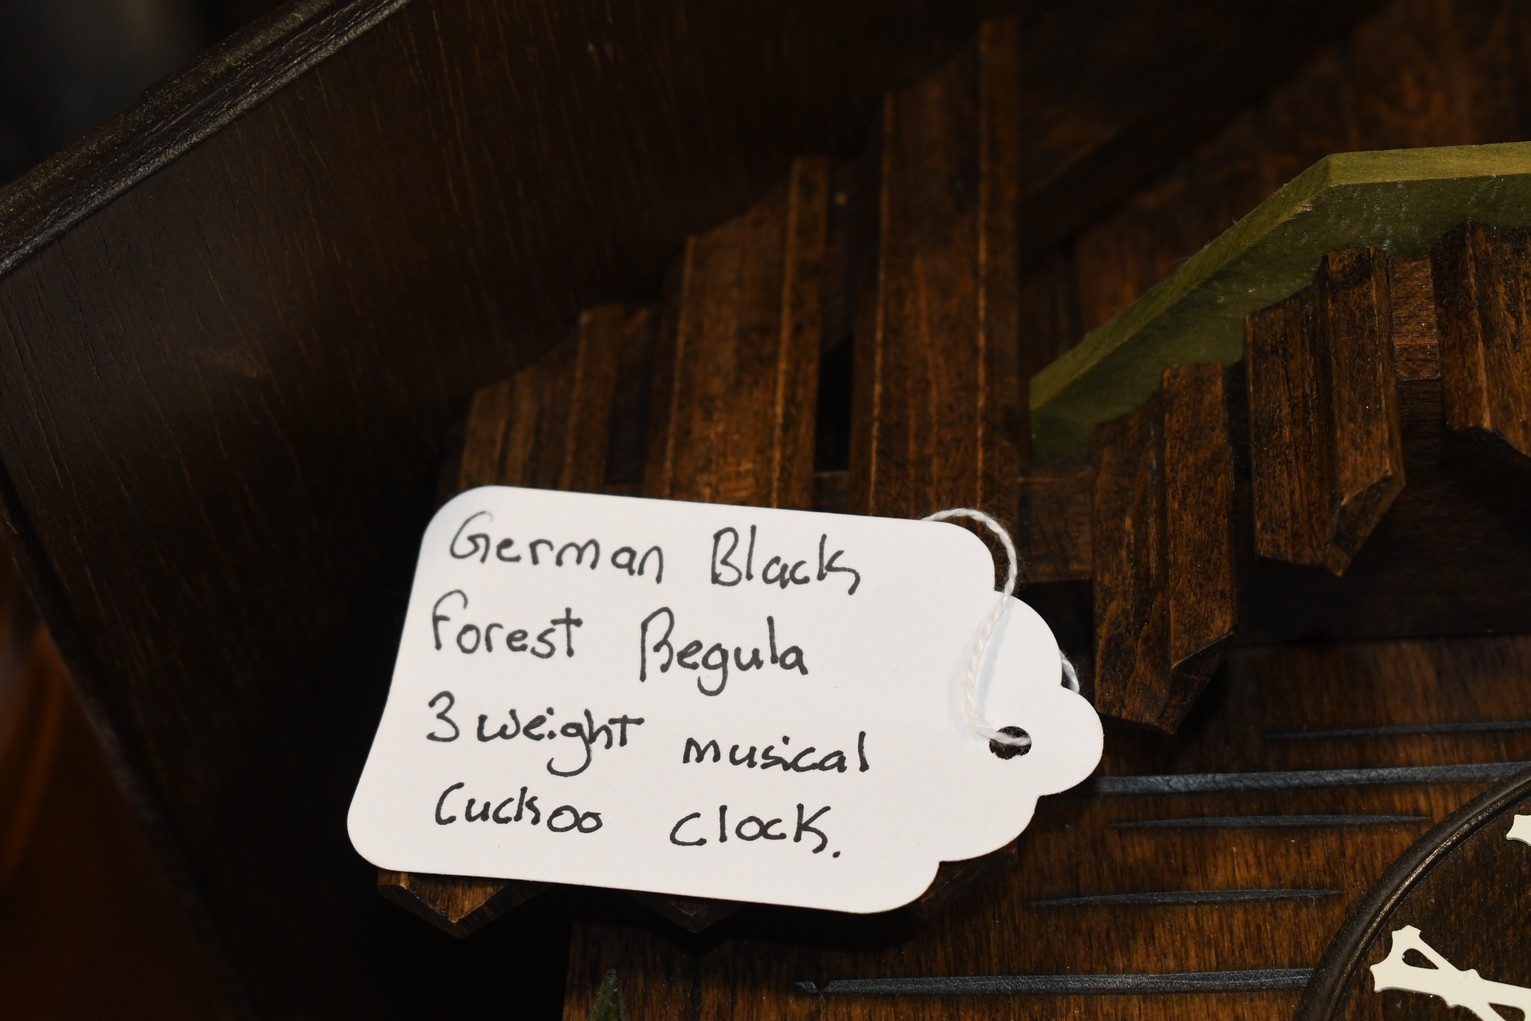 German Black
Forest Regula
3 weight musical
Cuckoo clock.